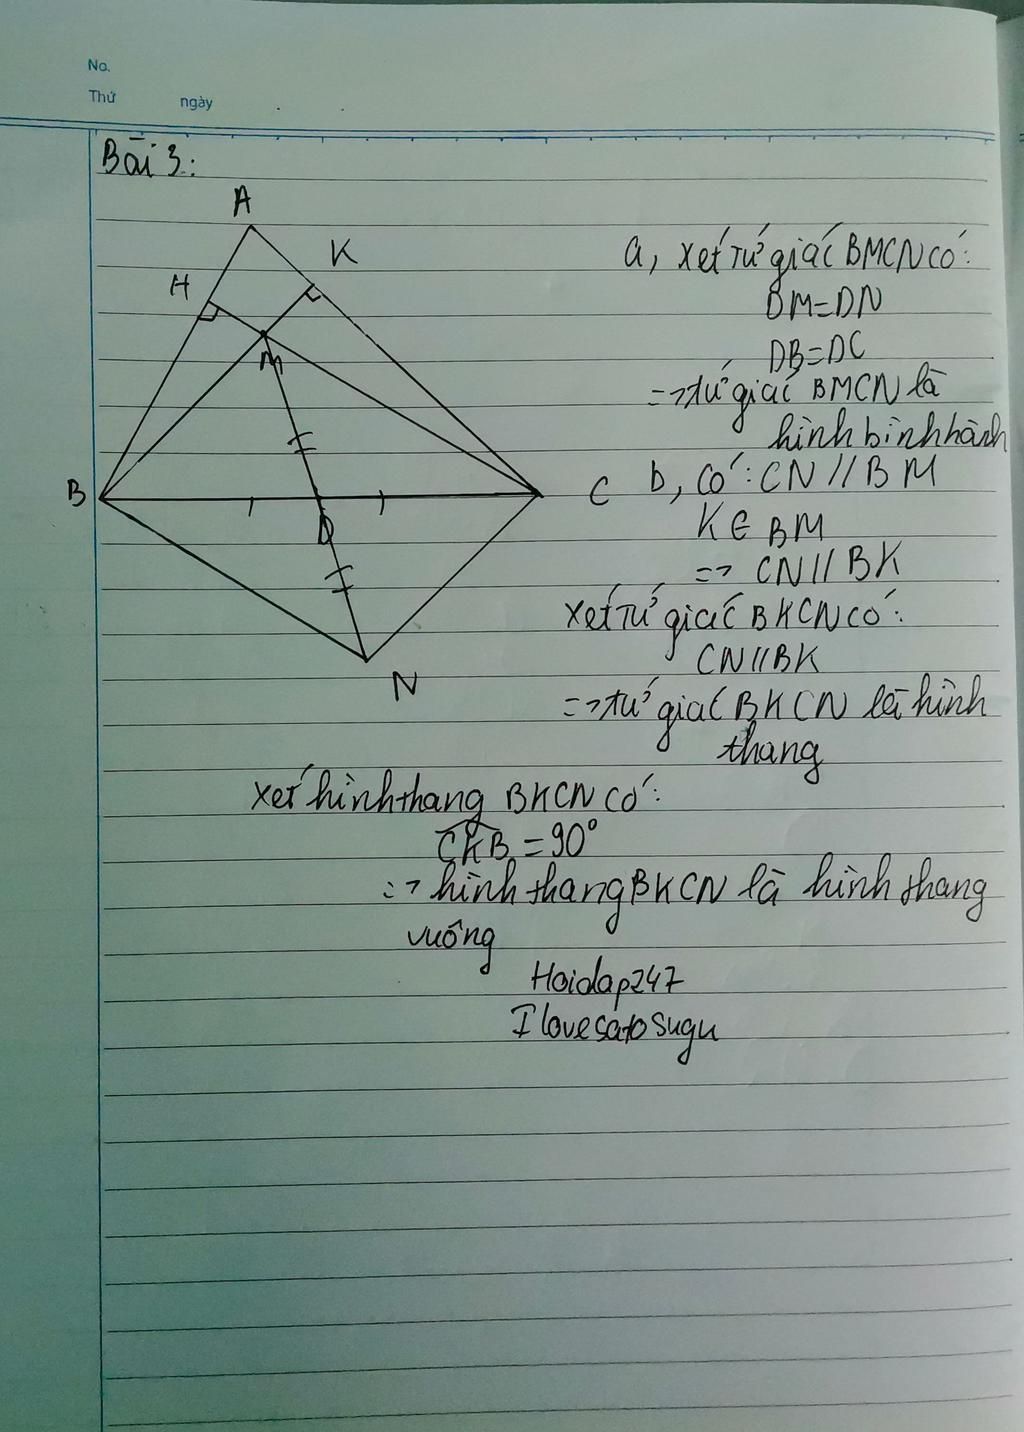 No.
Thứ ngày . .
Bài 3:
A
K
H
M
B
C
D
N
a, Xét Tứ giác BMCN có:
DM=DN
DB=DC
=> tứ giác BMCN là
hình bình hành
b, Có: CN // BM
K ∈ BM
=> CN // BK
Xét Tứ giác BKCN có:
CN // BK
=> tứ giác BKCN là hình
thang
Xét hình thang BKCN có:
CKB = 90°
=> hình thang BKCN là hình thang
vuông
Hoidap247
I love sato sugu